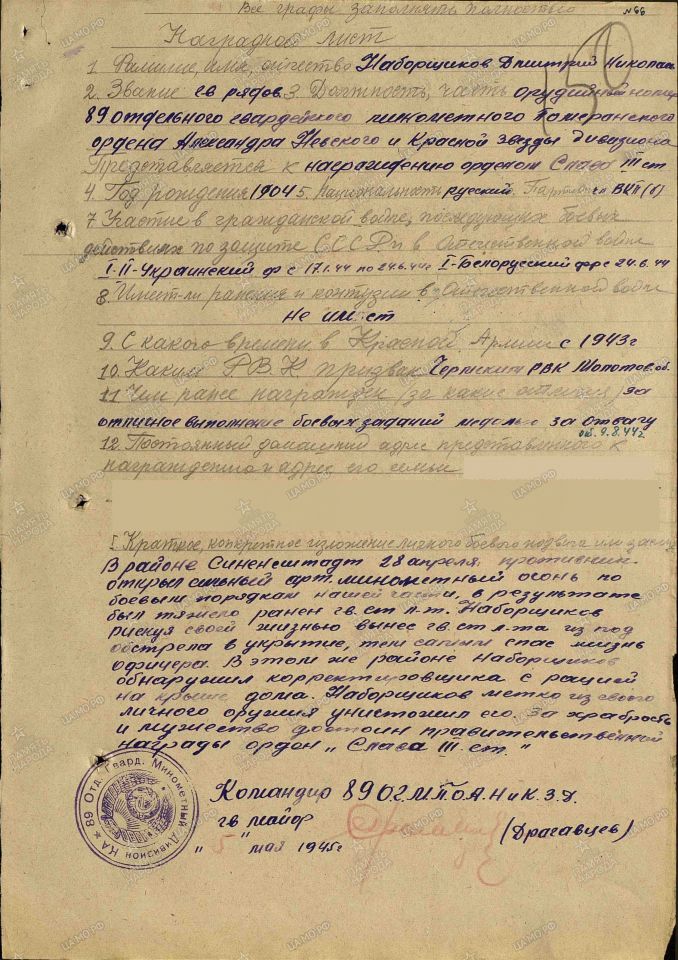 Все графы заполнять полностью
№66
Наградной лист
1 Фамилие, имя, отчество Наборщиков Дмитрий Николаев
2. Звание гв рядов. 3. Должность, часть орудийный номер
89 отдельного гвардейского минометного Померанского
ордена Александра Невского и Красной звезды дивизиона
Представляется к награждению орденом Слава III ст
4. Год рождения 1904 5. Национальность русский. Партийн чл ВКП(б)
7 Участие в гражданской войне, последующих боевых
действиях по защите СССР и в Отечественной войне
I-II-Украинский ф с 17.1.44 по 24.6.44г I-Белорусский фр с 24.6.44
8. Имеет-ли ранения и контузии в Отечественной войне
Не имеет
9. С какого времени в Красной Армии с 1943г
10. Каким Р.В.К. призван Чермским РВК Молотов. об.
11 Чем ранее награжден (за какие отличия) за
отличное выполнение боевых заданий медолью за отвагу
об. 9.8.44г
12. Постоянный домашний адрес представленного к
награждению и адрес его семьи
I Краткое, конкретное изложение личного боевого подвига или заслуг
В районе 28 апреля. противник
открыл сильный арт. минометный огонь по
боевым порядкам нашей части, в результате
был тяжело ранен гв. ст л-т. Наборщиков
рискуя своей жизнью вынес гв ст л-та из под
обстрела в укрытие, тем самым спас жизнь
офицера. В этом же районе Наборщиков
обнаружил корректировщика с рацией
на крыше дома. Наборщиков метко из своего
личного оружия уничтожил его. За храбрость
и мужество достоин правительственной
награды орден „Слава III ст."
Командир 89 О.Г.М.П.О.А.Н и К.З.Д.
гв майор (Драгавцев)
„5" мая 1945г
НА ★ 89 Отд. Гвард. Минометный Дивизион